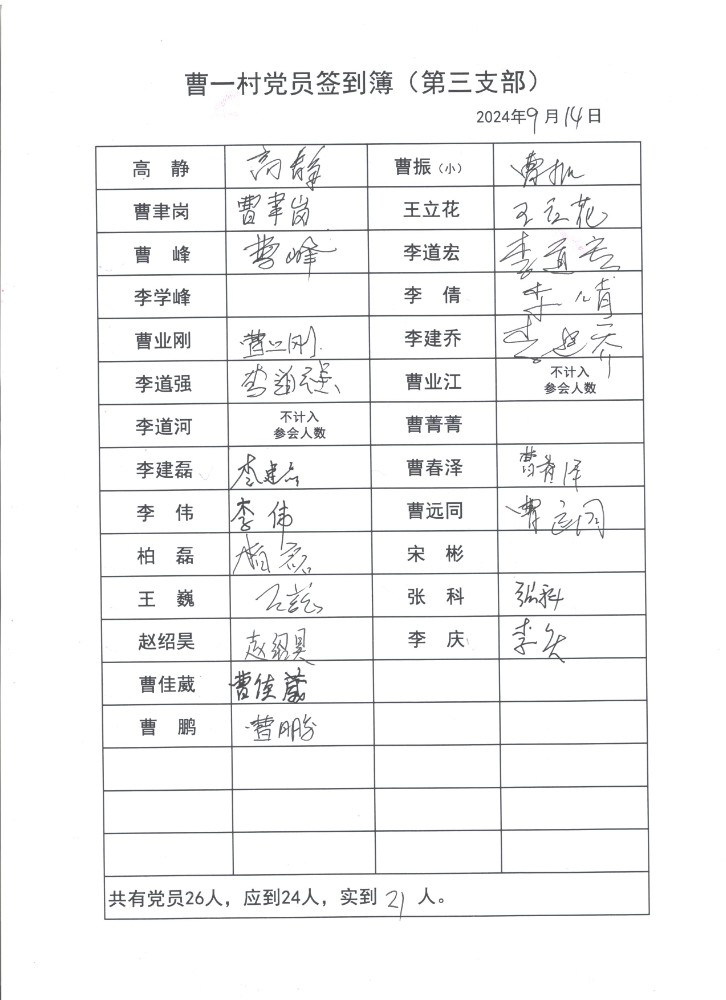 曹一村党员签到簿（第三支部）
2024年9月14日
高 静 高静 曹振（小） 曹振
曹聿岗 曹聿岗 王立花 王立花
曹 峰 曹峰 李道宏 李道宏
李学峰 李 倩 李倩
曹业刚 曹业刚 李建乔 李建乔
李道强 李道强 曹业江 不计入
参会人数
李道河 不计入
参会人数 曹菁菁
李建磊 李建磊 曹春泽 曹春泽
李 伟 李伟 曹远同 曹远同
柏 磊 柏磊 宋 彬
王 巍 王巍 张 科 张科
赵绍昊 赵绍昊 李 庆 李庆
曹佳葳 曹佳葳
曹 鹏 曹鹏
共有党员26人，应到24人，实到 21 人。